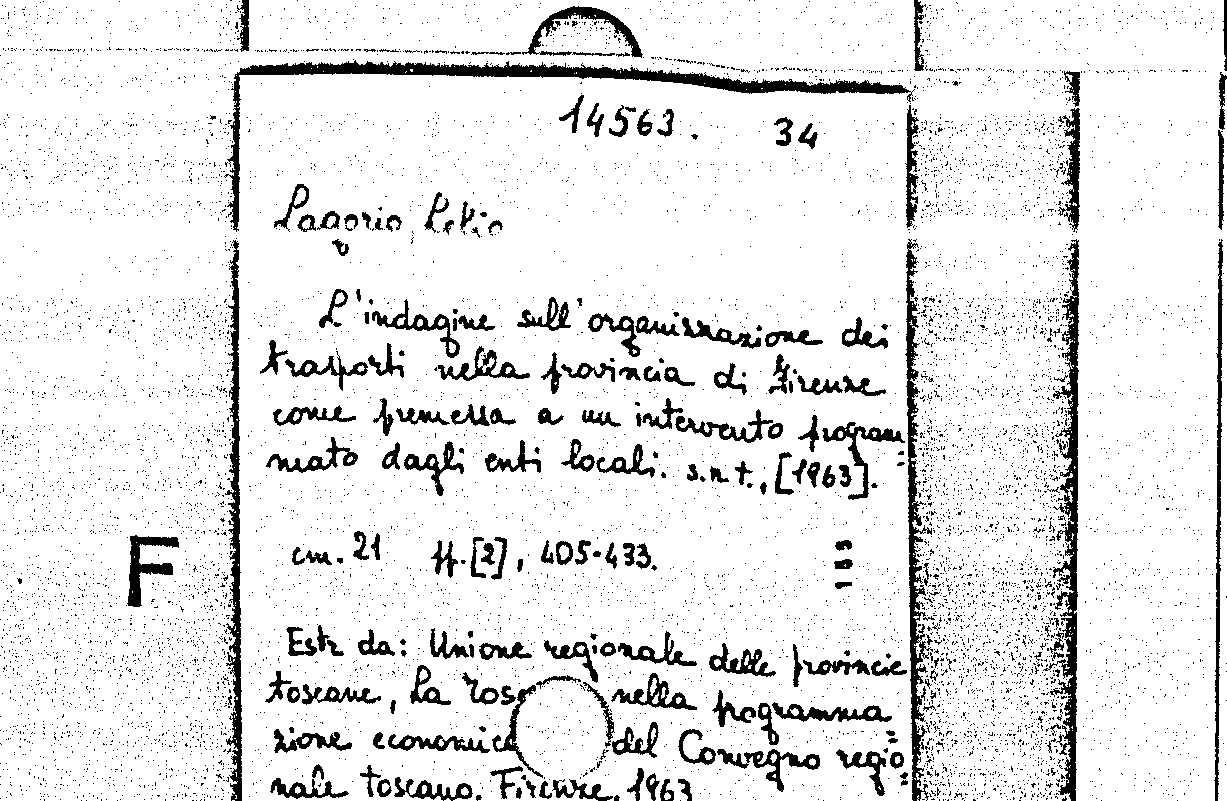 14563. 34
Lagorio Lelio
L'indagine sull'organizzazione dei
trasporti nella provincia di Firenze
come premessa a un intervento program=
mato dagli enti locali. s.n.t., [1963].
F
cm. 21 ff. [2], 405-433.
Estr da: Unione regionale delle provincie
toscane, La nella programma=
zione del Convegno regio=
nale toscano. Firenze, 1963